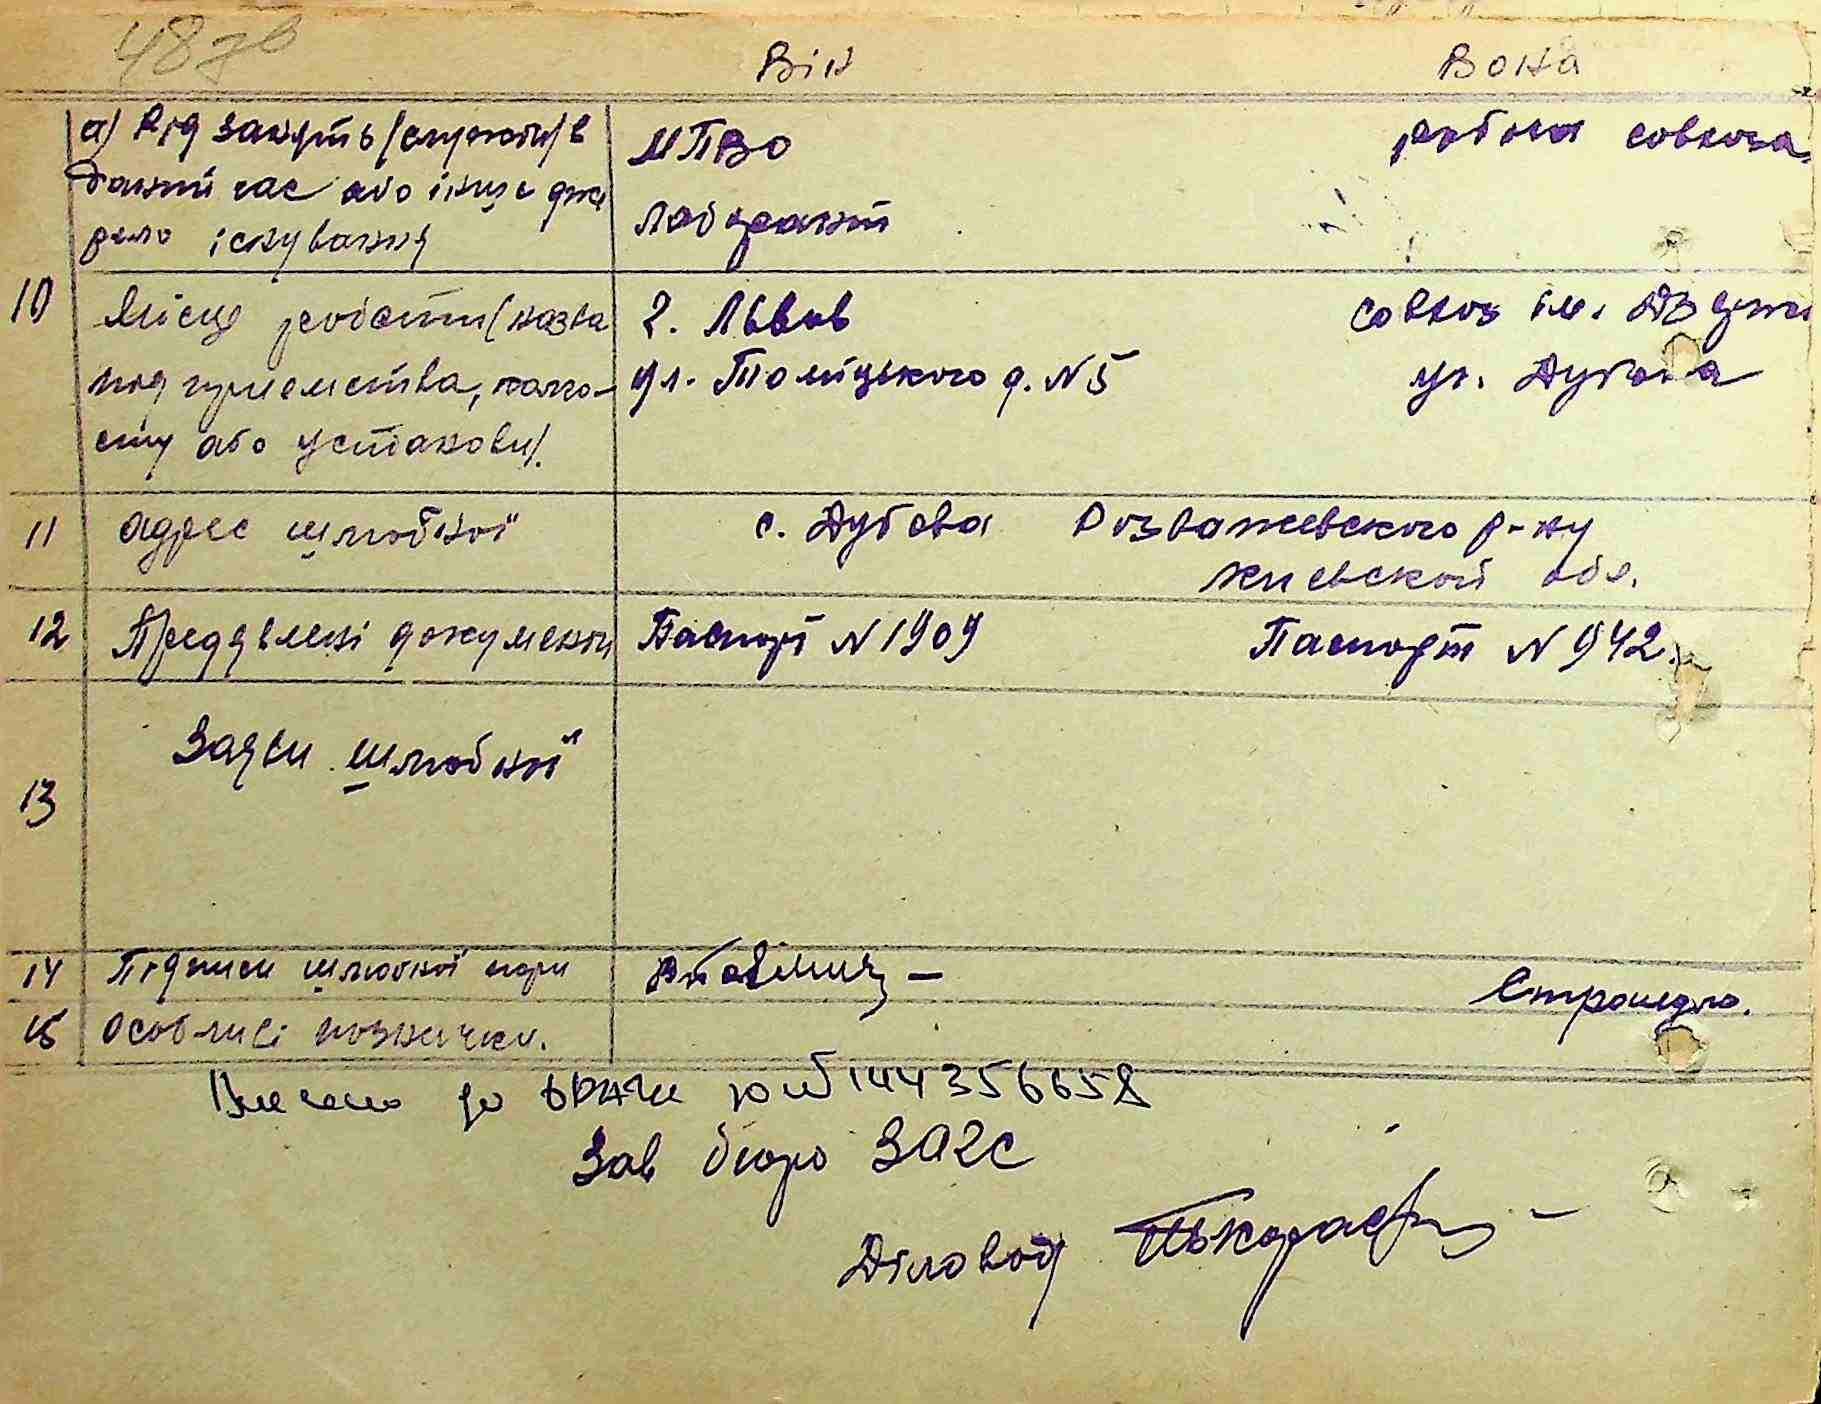 48зв
Він Вона
а) Рід занять (служби) в
даний час або інше дже
рело існування
МПВО
Лаборант
рабоча совхоза
10
Місце роботи (назва
под приемства, колго-
спу або установи).
г. Львов
ул. д. N 5
совхоз им. Дзержи
ул. Дубова
11 адрес шлюбної с. Дубова Розважевского р-ну
киевской обл.
12 Предявлені документи Паспорт N 1909 Паспорт N 942.
13 Заяви шлюбної
14 Підписи шлюбної пари
15 Особливі позначки.
Внесено до ДРАЦС 00144356658
Зав бюро ЗАГС
Діловод